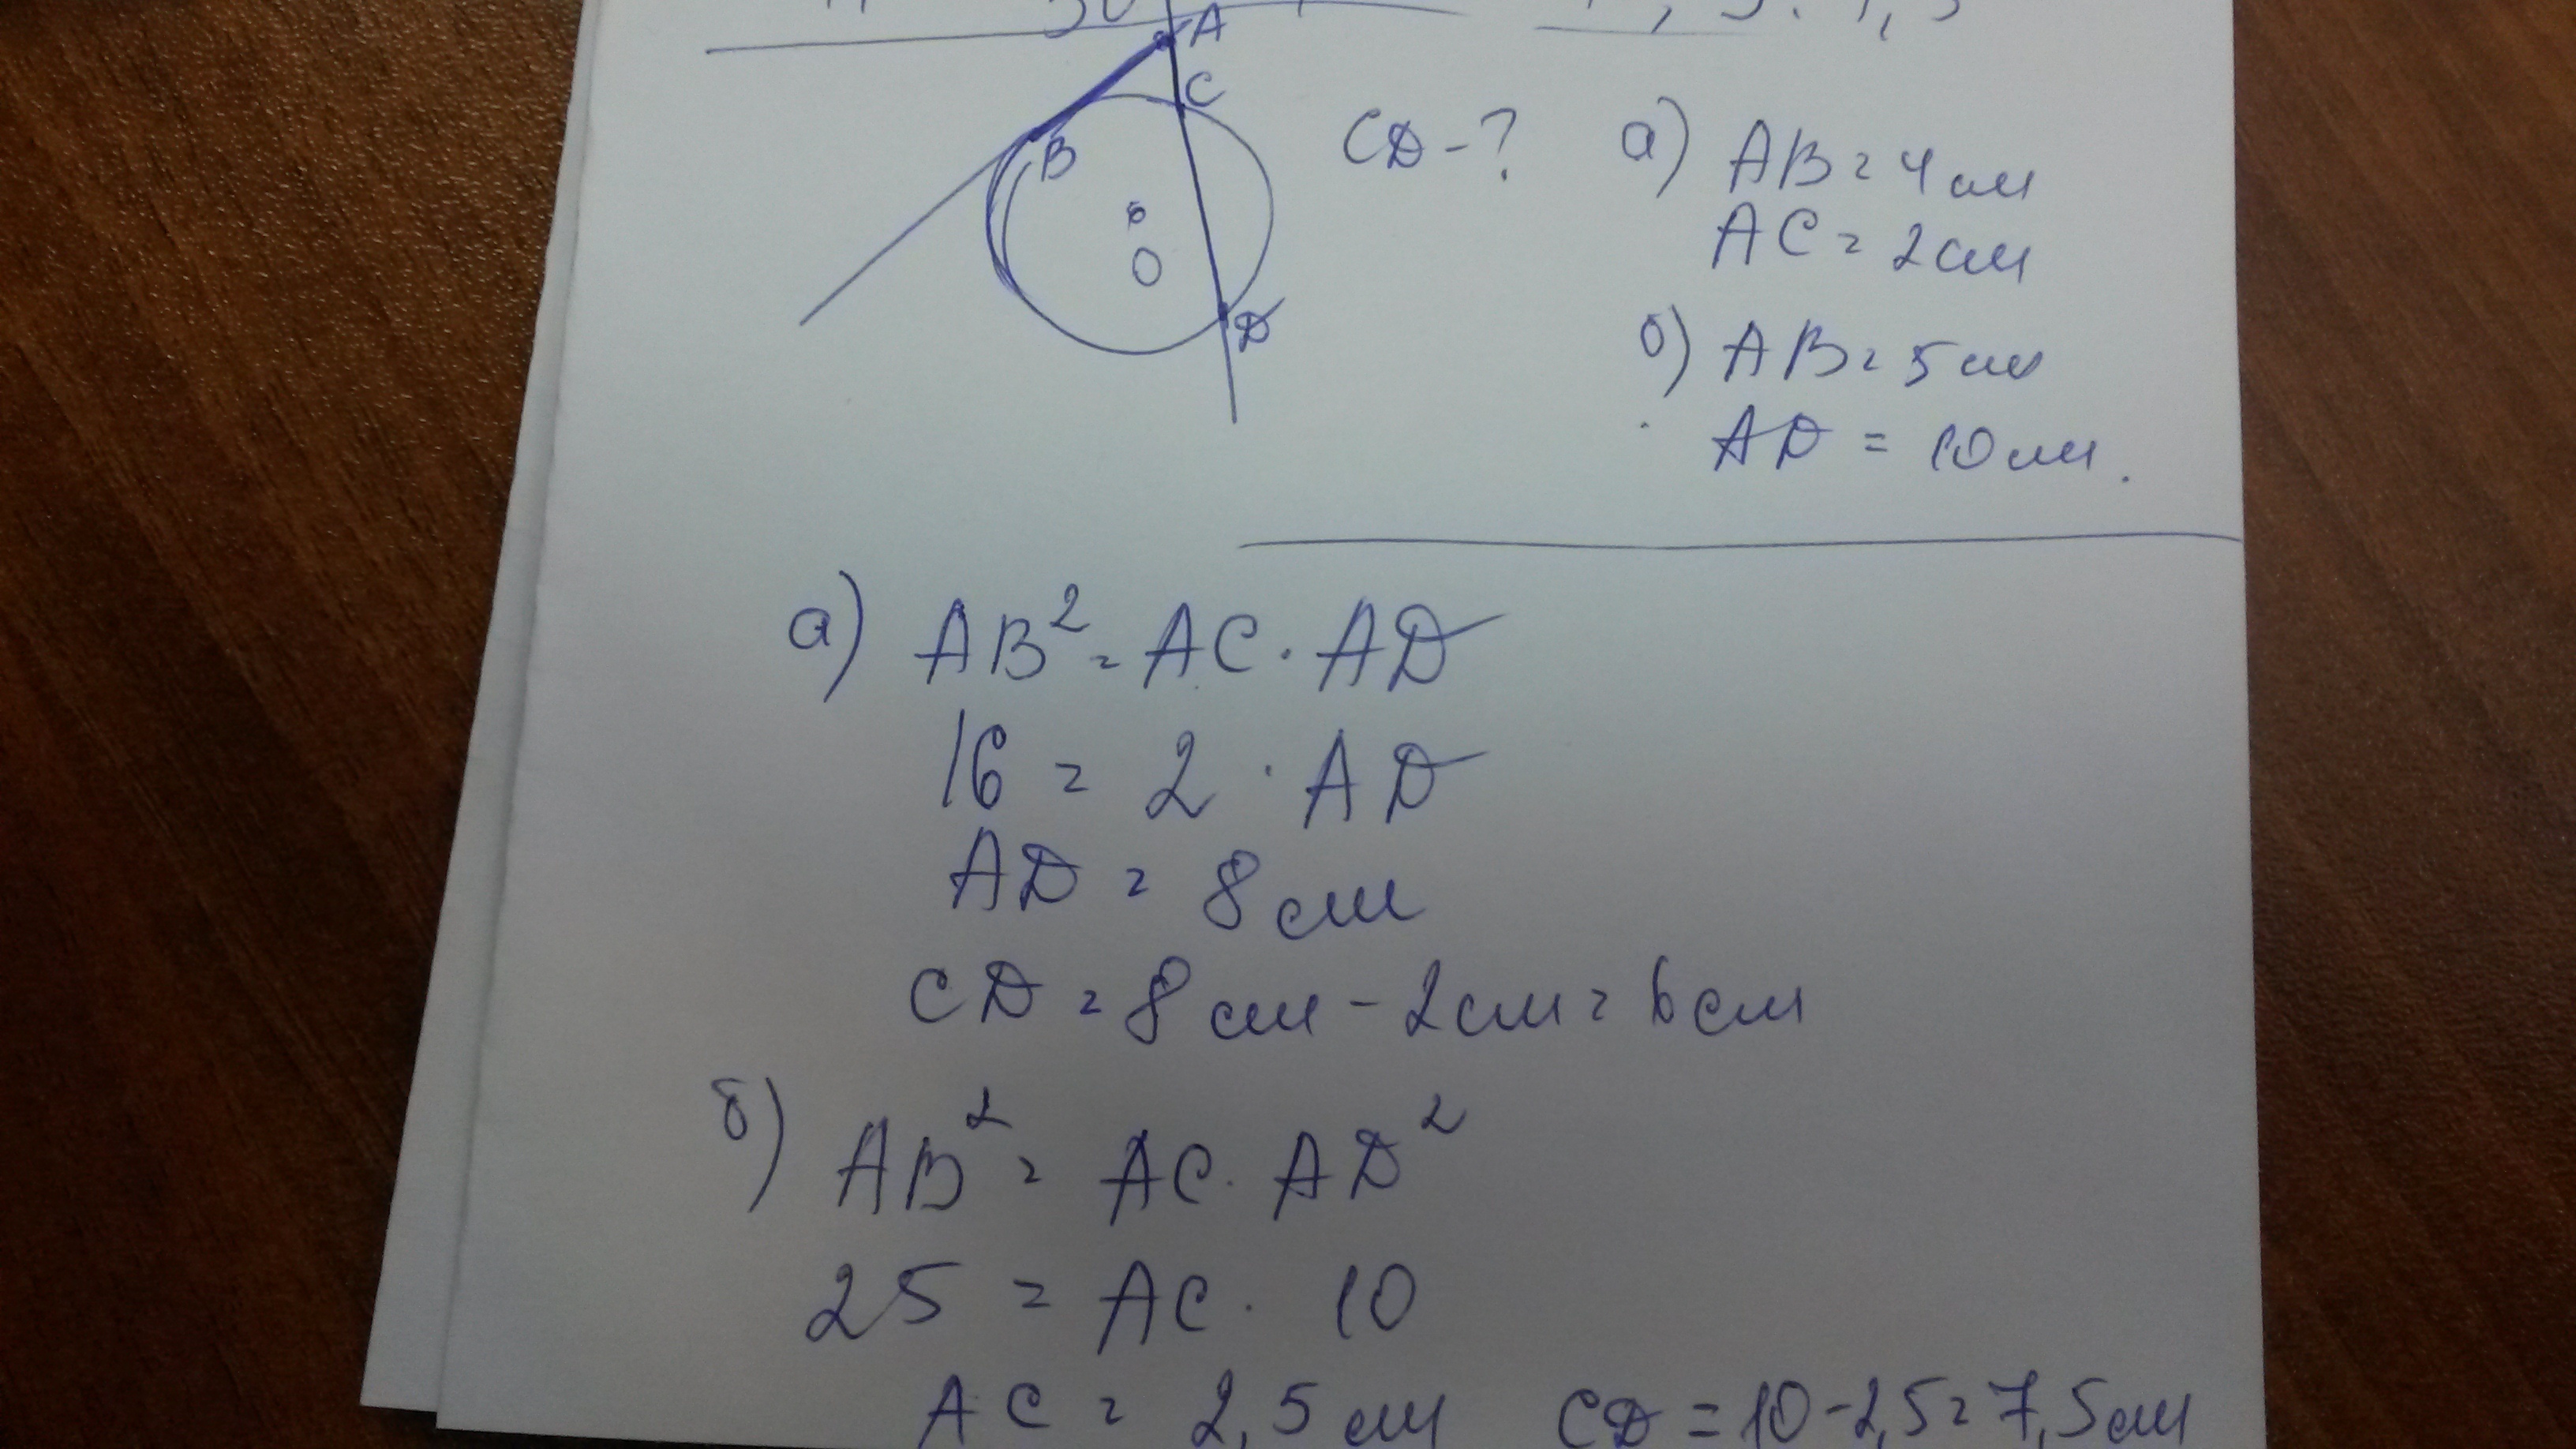 A
C
B
O
D
CD - ?
а) AB = 4 см
AC = 2 см
б) AB = 5 см
AD = 10 см.
а) AB² = AC · AD
16 = 2 · AD
AD = 8 см
CD = 8 см - 2 см = 6 см
б) AB² = AC · AD²
25 = AC · 10
AC = 2,5 см CD = 10 - 2,5 = 7,5 см